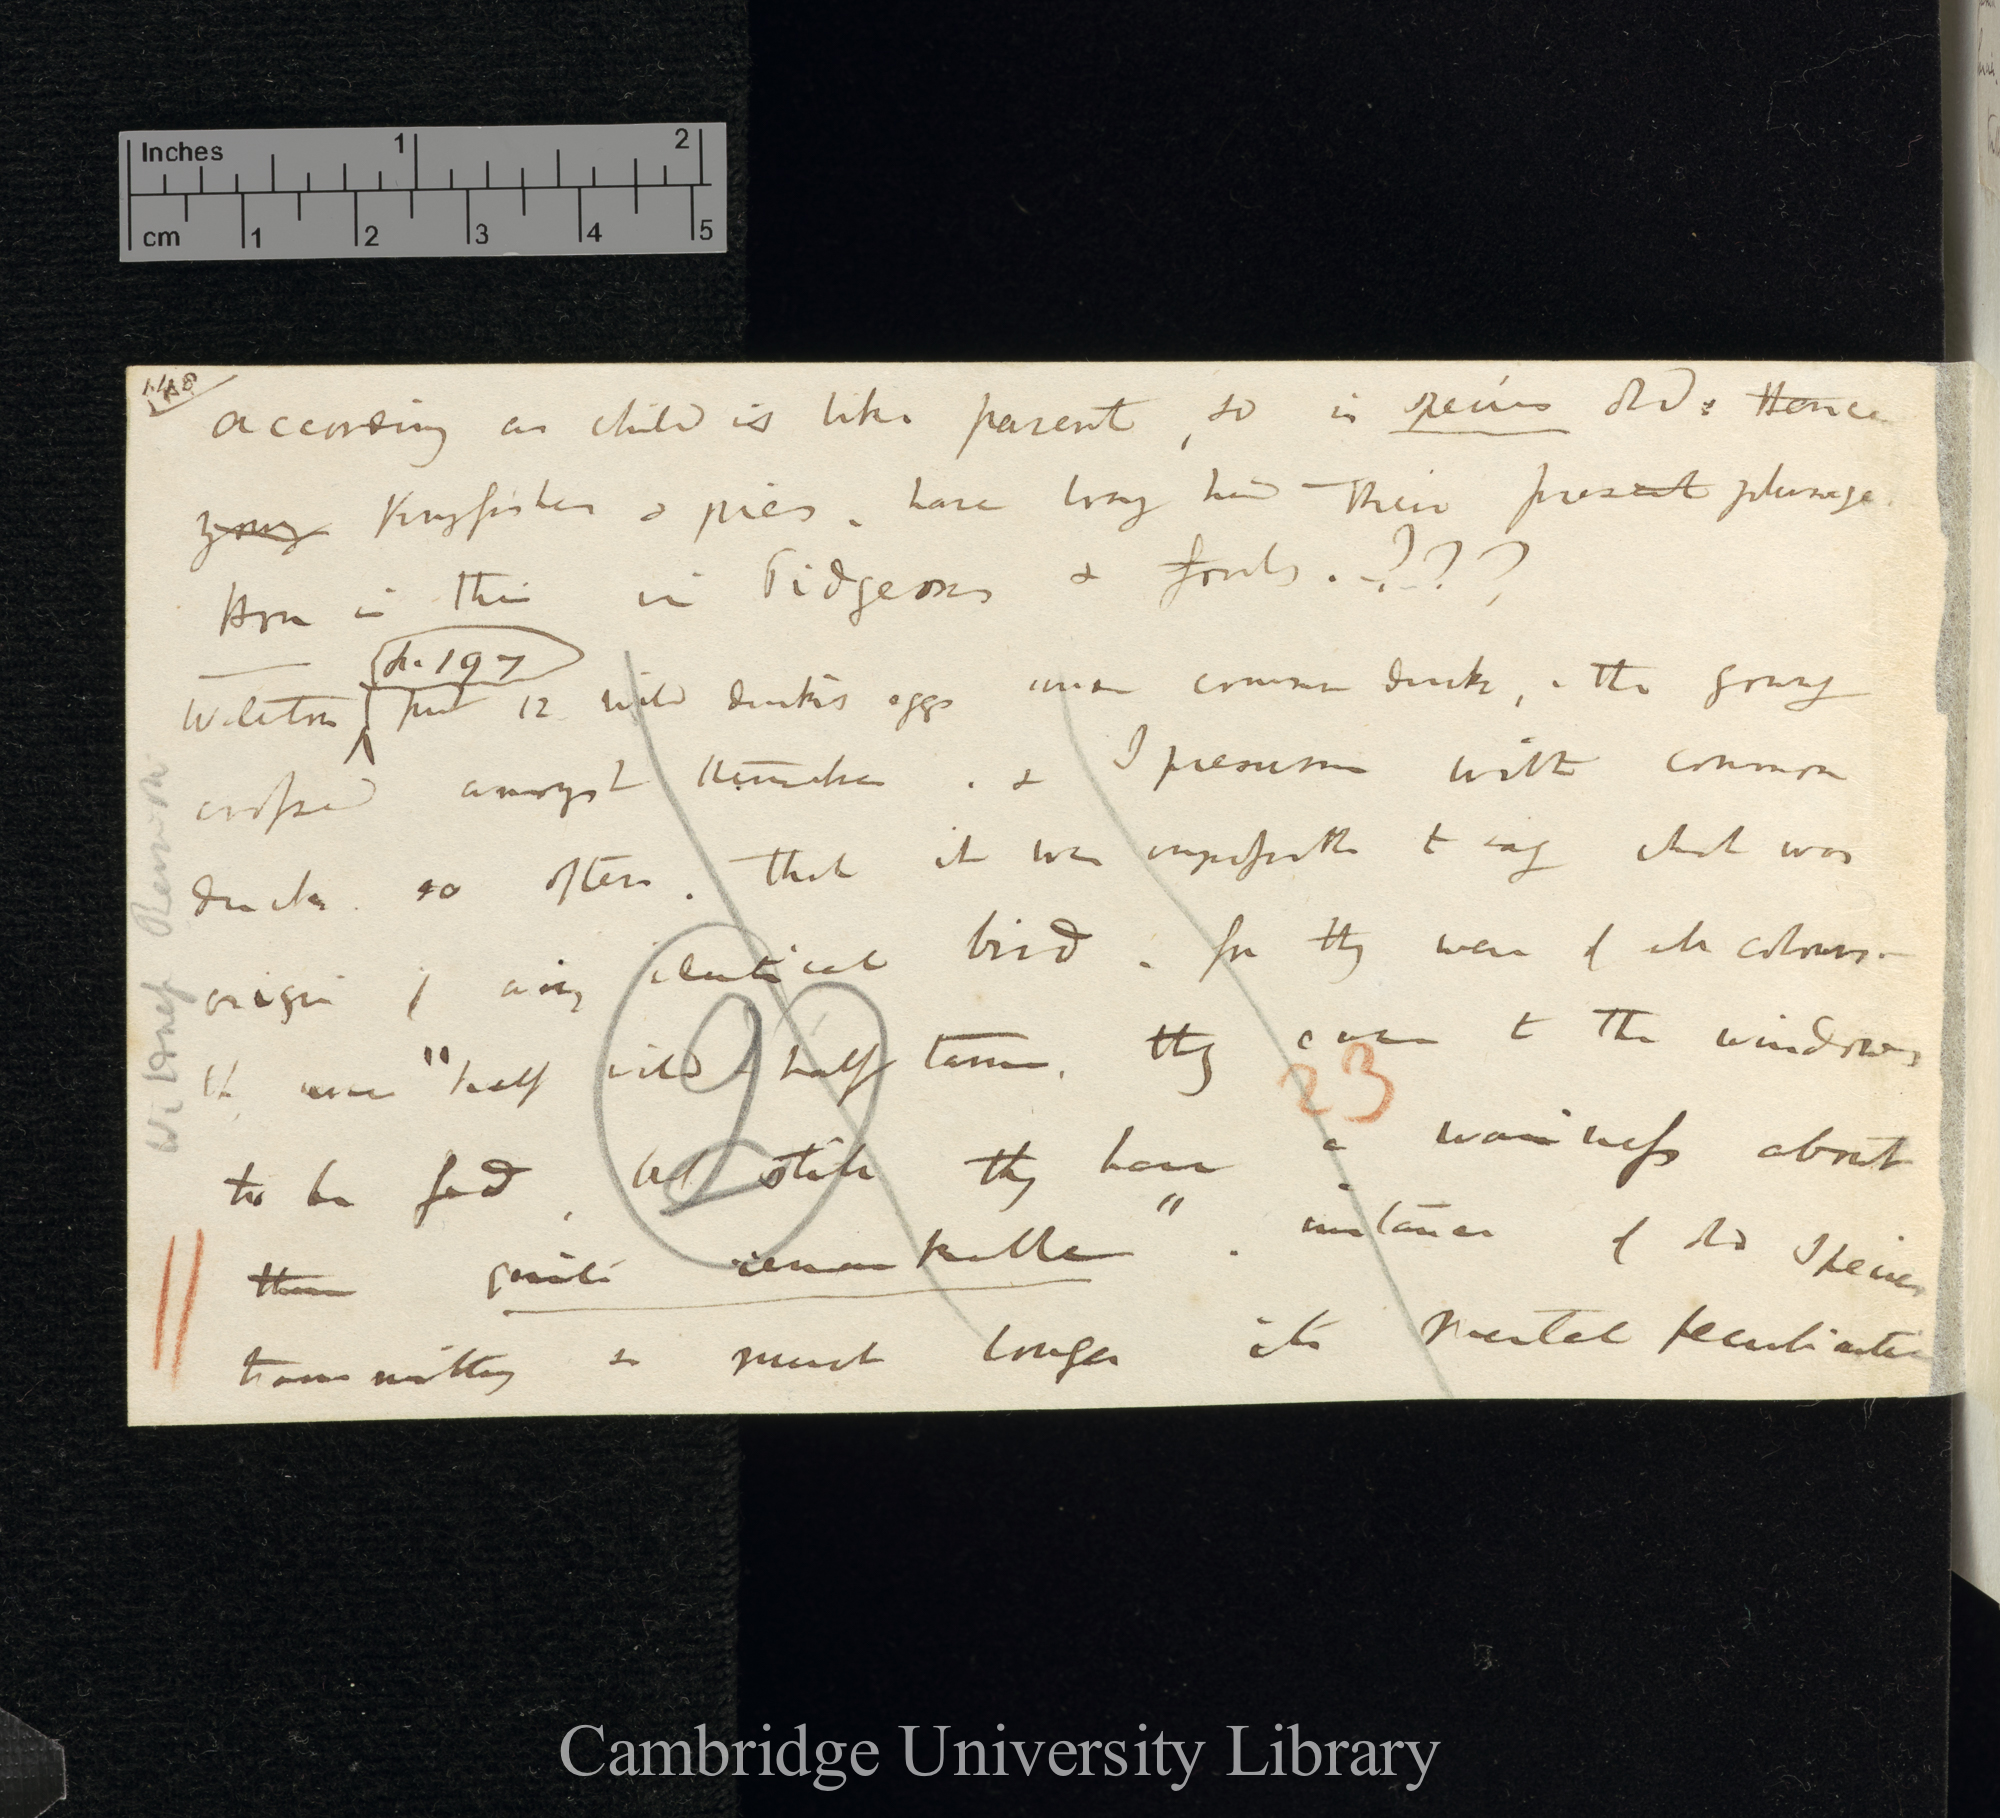 Inches 1 2
cm 1 2 3 4 5
148
according as child is like parent, so is species old: Hence
young Kingfisher & pies. have long had their present plumage.
How is this in Pidgeons & fowls.???
p. 197
put 12 wild ducks eggs under common duck, & the young
crossed amongst themselves. & I presume with common
ducks so often. that it was impossible to say what was
origin of any identical bird. for they were of all colours.
"half wild & half tame, they came to the windows
to be fed, but still they have a wariness about
them quite remarkable". instance of old species
transmitting so much longer its mental peculiarities
Wildness Remark
2
23
Cambridge University Library